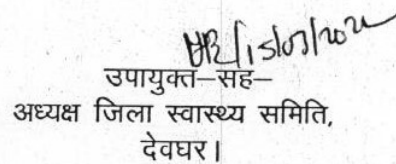 15/03/2022
उपायुक्त–सह–
अध्यक्ष जिला स्वास्थ्य समिति,
देवघर।